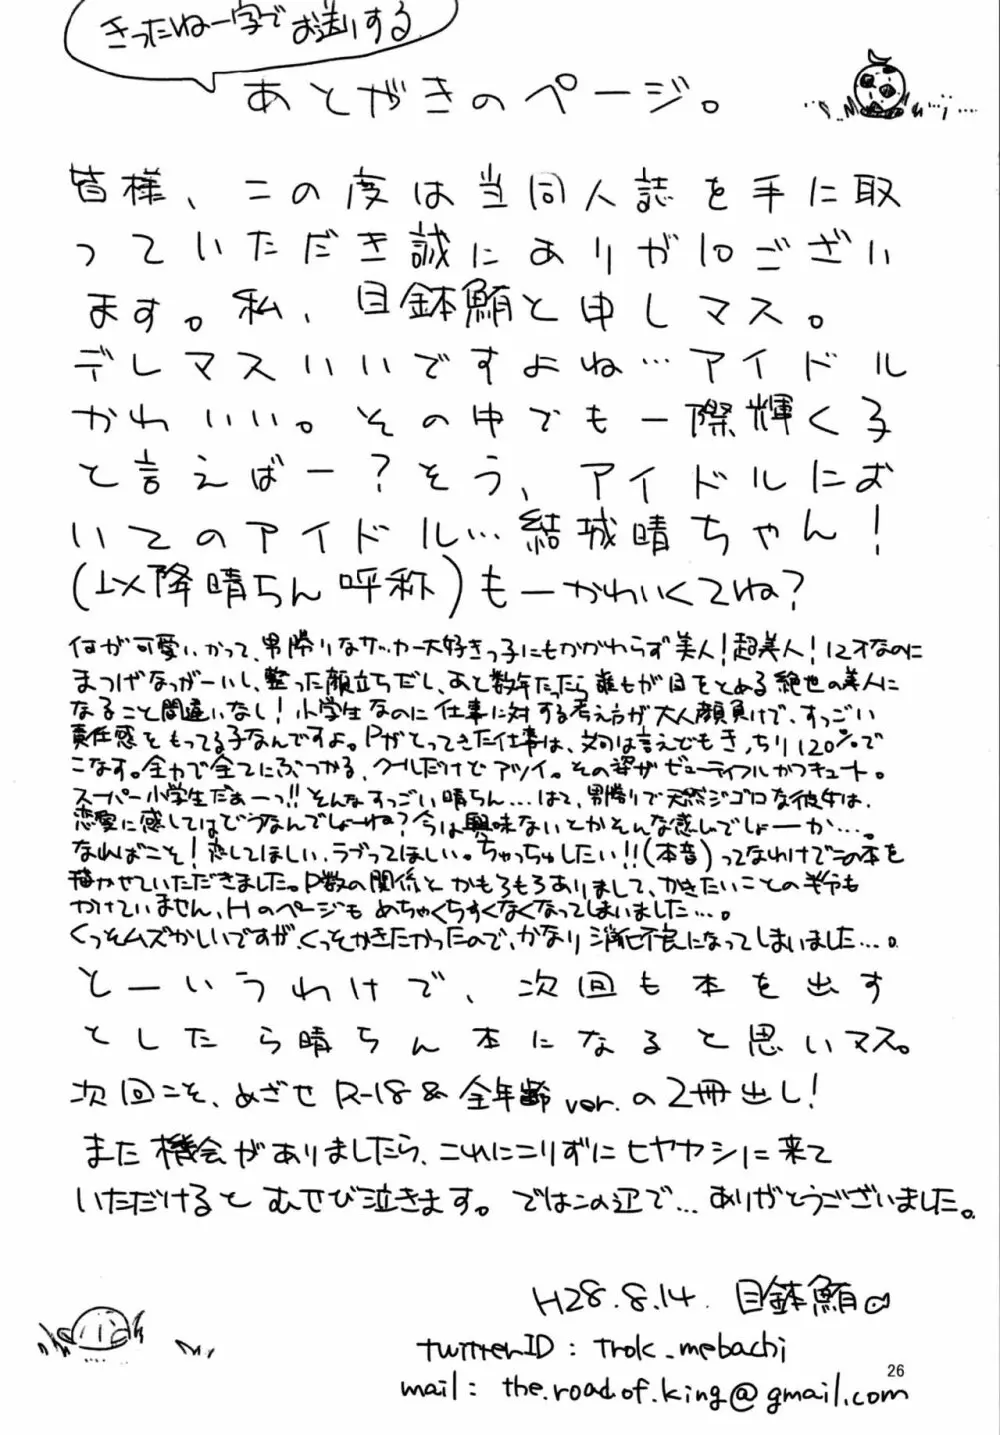 きったねー字でお送りする
あとがきのページ。
皆様、この度は当同人誌を手に取
っていただき誠にありがとございい
ます。私、目鉢鮪と申しマス。
デレマスいいですよね…アイドル
かわいい。その中でも一際輝く子
と言えばー？そう、アイドルにお
いてのアイドル…結城晴ちゃん！
(以降晴ちん呼称)もーかわいくてね？
何が可愛いかって、男勝りなサッカー大好きっ子にもかかわらず美人！超美人！12才なのに
まつげなっがーいし、整った顔立ちだし、あと数年たったら誰もが目をとめる絶世の美人に
なること間違いなし！小学生なのに仕事に対する考え方が大人顔負けで、すっごい
責任感をもってる子なんですよ。Pがとってきた仕事は、文句は言えどもきっちり120%で
こなす。全力で全てにぶつかる、クールだけどアツイ。その姿ザビューティフルかつキュート。
スーパー小学生だぁーっ!!そんなすっごい晴ちん…はて、男勝りで天然ジゴロな彼女は、
恋愛に感してはどうなんでしょーね？今は興味ないとかそんな感じでしょーか…。
なればこそ！恋してほしい、ラブってほしい。ちゃっちゅしたい!!(本音)ってなわけでこの本を
描かせていただきました。P数の関係とかもろもろありまして、かきたいことの半分も
かけていません、Hのページもめちゃくちすくなくなってしまいました…。
くっそムズかしいですが、くっそかきたかったので、かなり消化不良になってしまいました…。
とーいうわけで、次回も本を出す
としたら晴ちん本になると思いマス。
次回こそ、めざせR-18&全年齢ver.の2冊出し！
また機会がありましたら、これにこりずにヒヤヤシに来て
いただけるとむせび泣きます。ではこの辺で…ありがとうございました。
H28.8.14. 目鉢鮪
twitterID : Trok_mebachi
mail : the.road.of.king@gmail.com
26